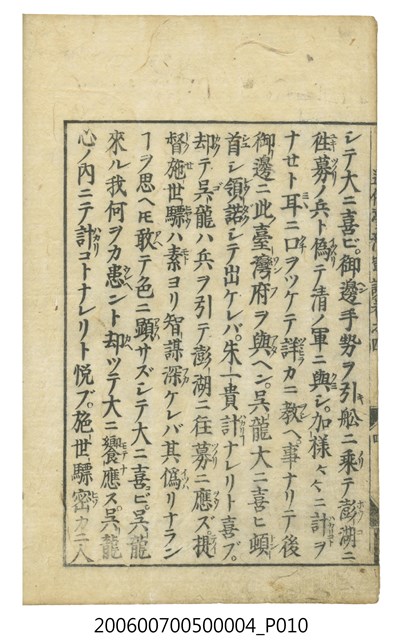 シテ大ニ喜ビ。御邊手勢ヲ引舩ニ乗テ彭湖ニ
徃募ノ兵ト偽テ清ノ軍ニ與シ。加様々々ニ計ヲ
ナセト耳ニ口ヲツケテ詳カニ教ヘ。事ナリテ後
御邊ニ此臺灣府ヲ與ヘン。呉龍大ニ喜ヒ頓
首シ領諾シテ出ケレバ。朱一貴計ナレリト喜ブ。
却テ呉龍ハ兵ヲ引テ彭湖ニ徃募ニ應ズ。提
督施世驃ハ素ヨリ智謀深ケレバ其偽リナラン
ヿヲ思ヘ𪜈敢テ色ニ顕サズシテ大ニ喜ビ。呉龍
來ル我何ヲカ患ント却ツテ大ニ饗應ス。呉龍
心ノ内ニテ計コトナレリト悦ブ。施世驃密カニ人
200600700500004_P010